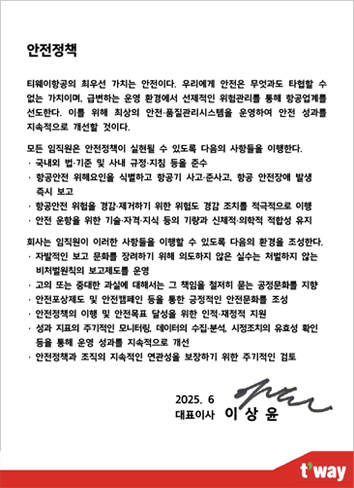 안전정책
티웨이항공의 최우선 가치는 안전이다. 우리에게 안전은 무엇과도 타협할 수
없는 가치이며, 급변하는 운영 환경에서 선제적인 위험관리를 통해 항공업계를
선도한다. 이를 위해 최상의 안전·품질관리시스템을 운영하여 안전 성과를
지속적으로 개선할 것이다.
모든 임직원은 안전정책이 실현될 수 있도록 다음의 사항들을 이행한다.
· 국내외 법·기준 및 사내 규정·지침 등을 준수
· 항공안전 위해요인을 식별하고 항공기 사고·준사고, 항공 안전장애 발생
즉시 보고
· 항공안전 위험을 경감·제거하기 위한 위험도 경감 조치를 적극적으로 이행
· 안전 운항을 위한 기술·자격·지식 등의 기량과 신체적·의학적 적합성 유지
회사는 임직원이 이러한 사항들을 이행할 수 있도록 다음의 환경을 조성한다.
· 자발적인 보고 문화를 장려하기 위해 의도하지 않은 실수는 처벌하지 않는
비처벌원칙의 보고제도를 운영
· 고의 또는 중대한 과실에 대해서는 그 책임을 철저히 묻는 공정문화를 지향
· 안전포상제도 및 안전캠페인 등을 통한 긍정적인 안전문화를 조성
· 안전정책의 이행 및 안전목표 달성을 위한 인적·재정적 지원
· 성과 지표의 주기적인 모니터링, 데이터의 수집·분석, 시정조치의 유효성 확인
등을 통해 운영 성과를 지속적으로 개선
· 안전정책과 조직의 지속적인 연관성을 보장하기 위한 주기적인 검토
2025. 6
대표이사 이 상 윤
t'way